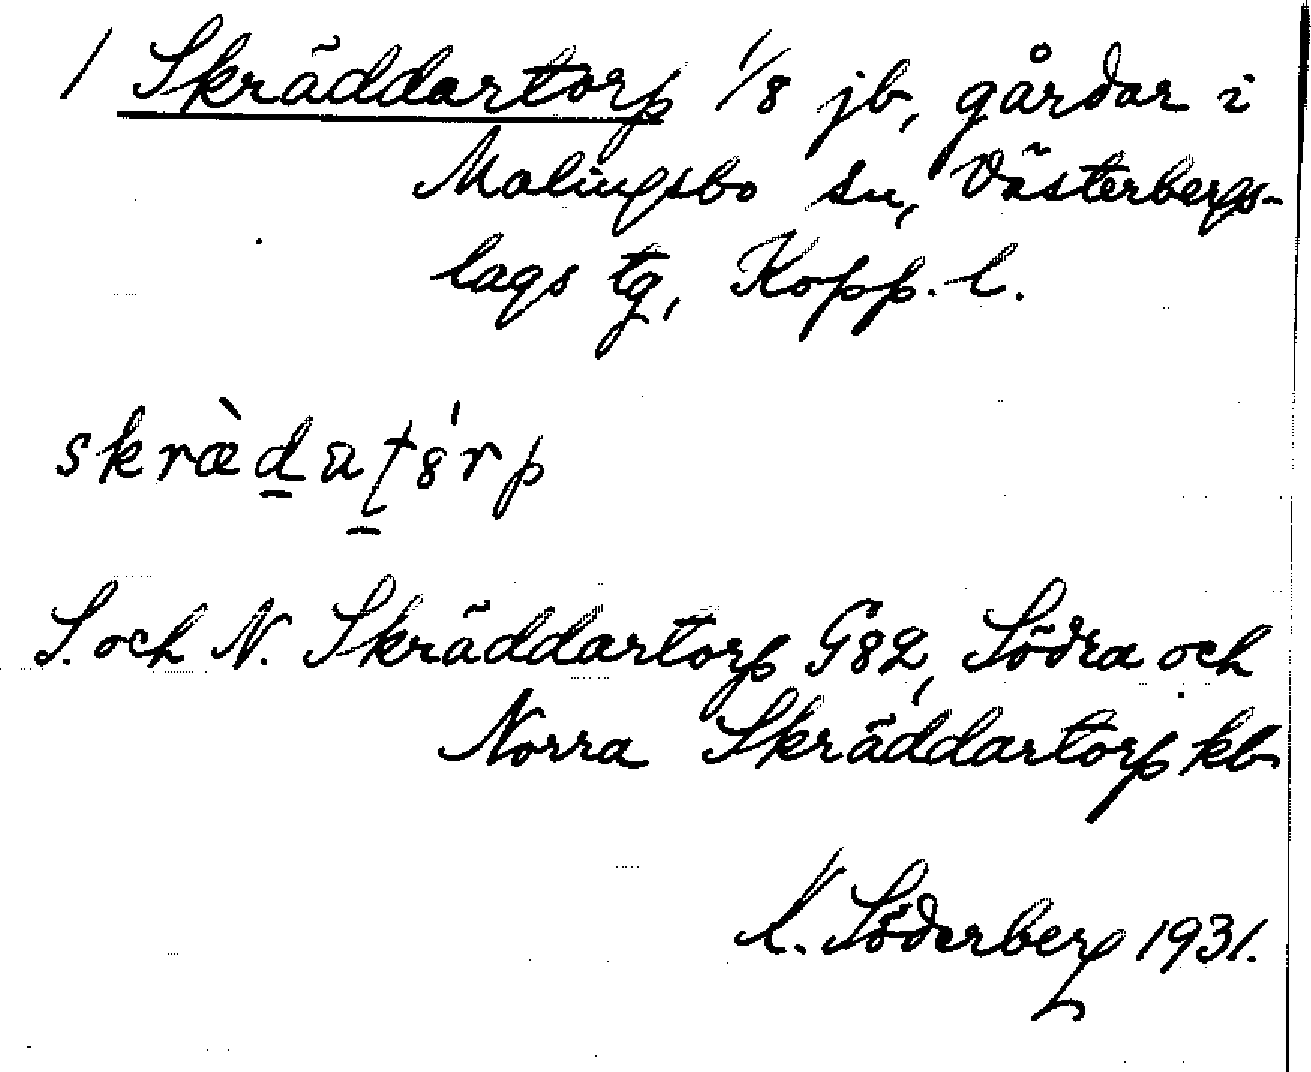 / Skräddartorp 1/8 jb, gårdar i
Malingsbo sn, Västerbergs-
lags tg, Kopp. l.
S. och N. Skräddartorp G82, Södra och
Norra Skräddartorp kb
Söderberg 1931.